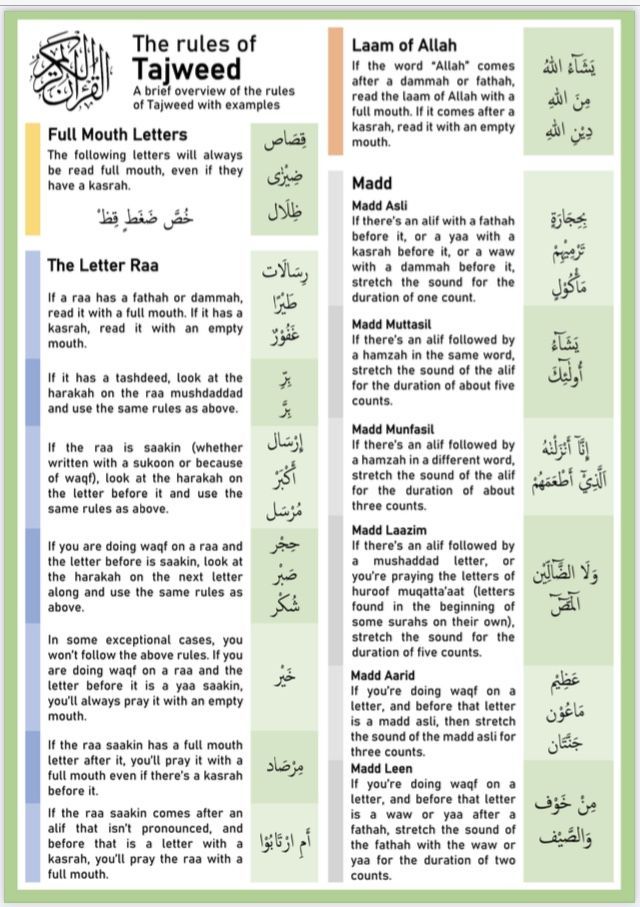 The rules of
Tajweed
A brief overview of the rules
of Tajweed with examples
Full Mouth Letters
The following letters will always
be read full mouth, even if they
have a kasrah.
خُصَّ ضَغْطٍ قِظْ
قِصَاص
ضِيْزٰى
ظِلَال
The Letter Raa
If a raa has a fathah or dammah,
read it with a full mouth. If it has a
kasrah, read it with an empty
mouth.
رِسَالَات
طَيْرًا
غَفُوْرٌ
If it has a tashdeed, look at the
harakah on the raa mushdaddad
and use the same rules as above.
بِرِّ
بِرَّ
If the raa is saakin (whether
written with a sukoon or because
of waqf), look at the harakah on
the letter before it and use the
same rules as above.
إِرْسَال
أَكْبَرْ
مُرْسَل
If you are doing waqf on a raa and
the letter before is saakin, look at
the harakah on the next letter
along and use the same rules as
above.
حِجْر
صَبْر
شُكْر
In some exceptional cases, you
won't follow the above rules. If you
are doing waqf on a raa and the
letter before it is a yaa saakin,
you'll always pray it with an empty
mouth.
خَيْر
If the raa saakin has a full mouth
letter after it, you'll pray it with a
full mouth even if there's a kasrah
before it.
مِرْصَاد
If the raa saakin comes after an
alif that isn't pronounced, and
before that is a letter with a
kasrah, you'll pray the raa with a
full mouth.
أَمِ ارْتَابُوْا
Laam of Allah
If the word "Allah" comes
after a dammah or fathah,
read the laam of Allah with a
full mouth. If it comes after a
kasrah, read it with an empty
mouth.
يَشَآءُ اللهُ
مِنَ اللهِ
دِيْنِ اللهِ
Madd
Madd Asli
If there's an alif with a fathah
before it, or a yaa with a
kasrah before it, or a waw
with a dammah before it,
stretch the sound for the
duration of one count.
بِحِجَارَةٍ
تَرْمِيْهِمْ
مَأْكُوْلٍ
Madd Muttasil
If there's an alif followed by
a hamzah in the same word,
stretch the sound of the alif
for the duration of about five
counts.
يَشَآءُ
أُولٰٓئِكَ
Madd Munfasil
If there's an alif followed by
a hamzah in a different word,
stretch the sound of the alif
for the duration of about
three counts.
إِنَّآ أَنْزَلْنٰهُ
الَّذِيْٓ أَطْعَمَهُمْ
Madd Laazim
If there's an alif followed by
a mushaddad letter, or
you're praying the letters of
huroof muqatta'aat (letters
found in the beginning of
some surahs on their own),
stretch the sound for the
duration of five counts.
وَلَا الضَّآلِّيْن
الٓمٓصٓ
Madd Aarid
If you're doing waqf on a
letter, and before that letter
is a madd asli, then stretch
the sound of the madd asli for
three counts.
عَظِيْم
مَاعُوْن
جَنَّتَان
Madd Leen
If you're doing waqf on a
letter, and before that letter
is a waw or yaa after a
fathah, stretch the sound of
the fathah with the waw or
yaa for the duration of two
counts.
مِنْ خَوْف
وَالصَّيْف